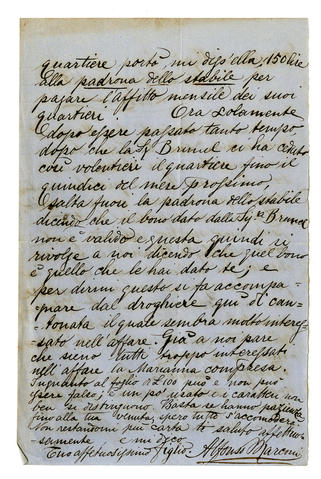 quartiere portò, mi diss'ella, 150 lire
alla padrona dello stabile per
pagare l'affitto mensile dei suoi
quartieri Ora solamente
dopo essere passato tanto tempo
dopo che la Sig Brunel ci ha ceduto
così volentieri il quartiere fino il
quindici del mese prossimo
salta fuori la padrona dello stabile
dicendo che il bono dato dalla Sig.ra Brunel
non è valido e questa quindi si
rivolge a noi dicendo che quel bono
è quello che le hai dato te; e
per dirmi questo si fa accompa-
gnare dal droghiere qui di can-
tonata il quale sembra molto interes-
sato nell'affare. Già a noi pare
che sieno tutti troppo interessati
nell'affare la Marianna compresa.
Inquanto al foglio da £100 può e non può
essere falso; è un po' usato e i caratteri non
ben si distinguono. Basta se hanno pazienza
fino alla tua venuta spero tutto s'accomoderà
Non restandomi più carta ti saluto affettuo-
samente e mi dico
Tuo affettuosissimo figlio. Alfonso Marconi